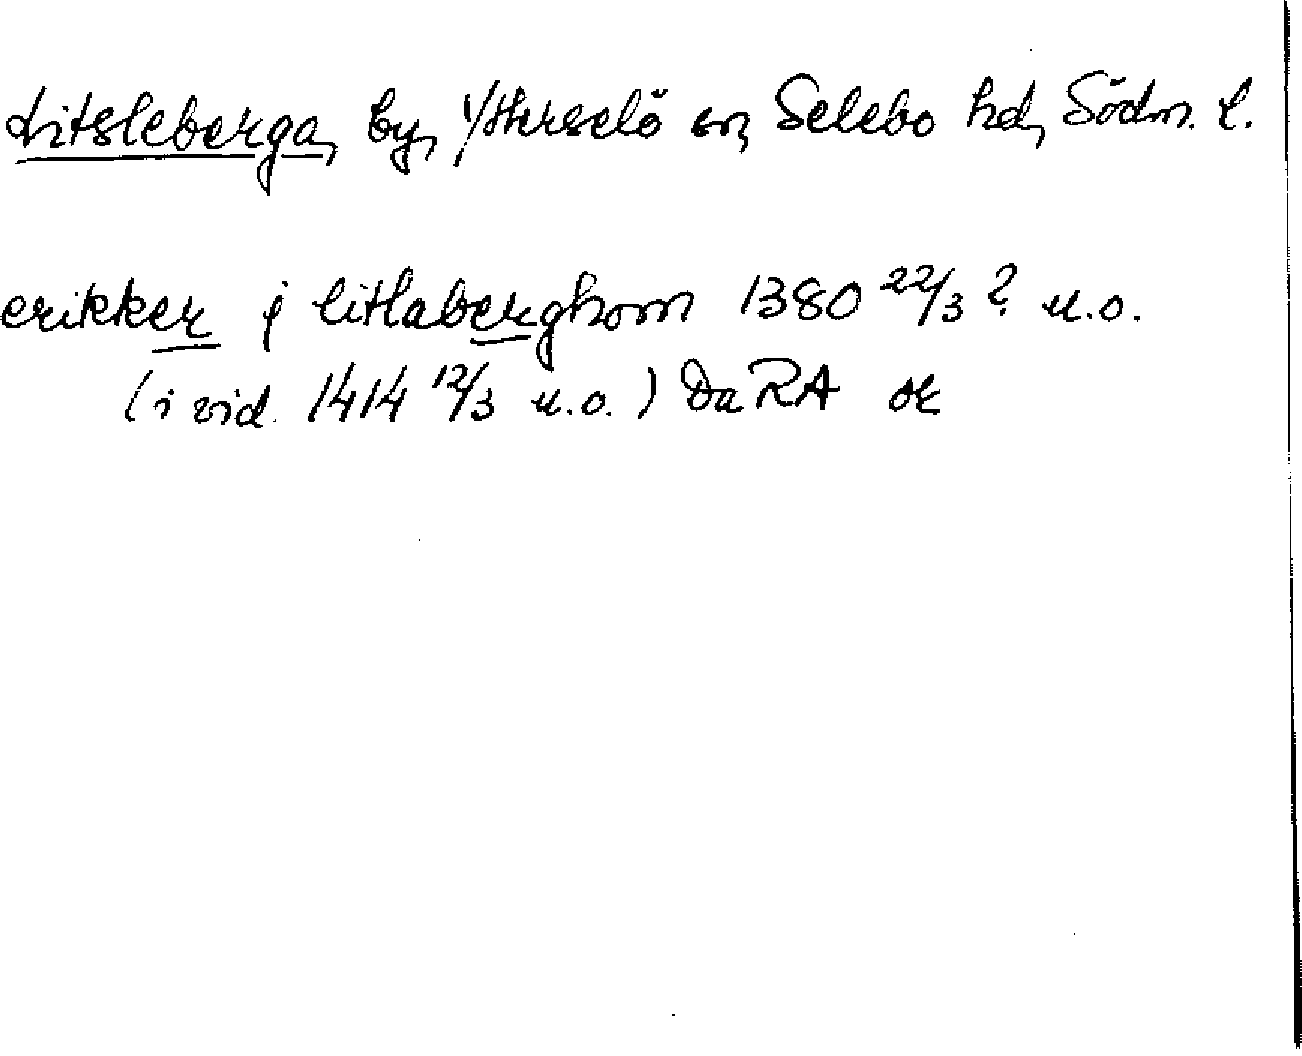 Litsleberga, by, Ytterselö sn, Selebo hd, Södm. l.
erikker j litlaberghom 1380 22/3 ? u.o.
(i vid. 1414 12/3 u.o.) Da RA or